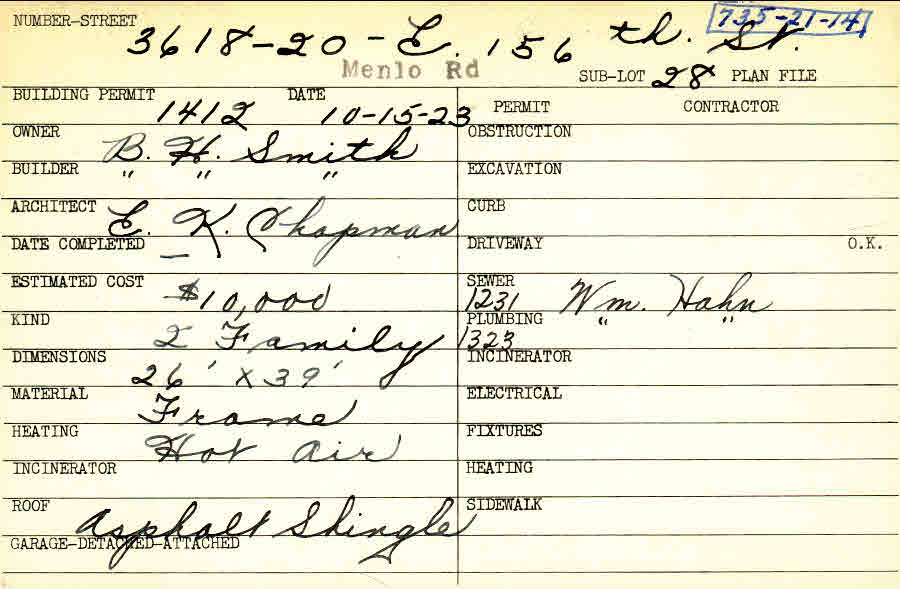 NUMBER-STREET 735-21-14
3618-20 - E. 156 th. St.
Menlo Rd
SUB-LOT 28 PLAN FILE
BUILDING PERMIT 1412 DATE 10-15-23
OWNER B. H. Smith
BUILDER " " "
ARCHITECT E. K. Chapman
DATE COMPLETED —
ESTIMATED COST $10,000
KIND 2 Family
DIMENSIONS 26' X 39'
MATERIAL Frame
HEATING Hot Air
INCINERATOR
ROOF Asphalt Shingle
GARAGE-DETACHED-ATTACHED
PERMIT CONTRACTOR
OBSTRUCTION
EXCAVATION
CURB
DRIVEWAY O.K.
SEWER 1231 Wm. Hahn
PLUMBING 1323 " "
INCINERATOR
ELECTRICAL
FIXTURES
HEATING
SIDEWALK